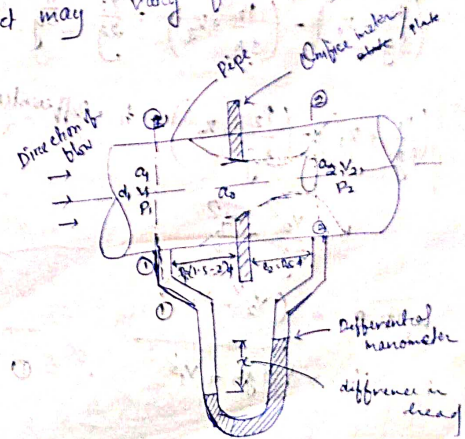 ct may vary
Pipe
Orifice meter
/ plate
Direction of
flow
②
②
a₁
d₁ v₁
P₁
a₀
a₂ v₂,
P₂
①
①
②
(1.5-2)d
Differential
manometer
x
difference in
head